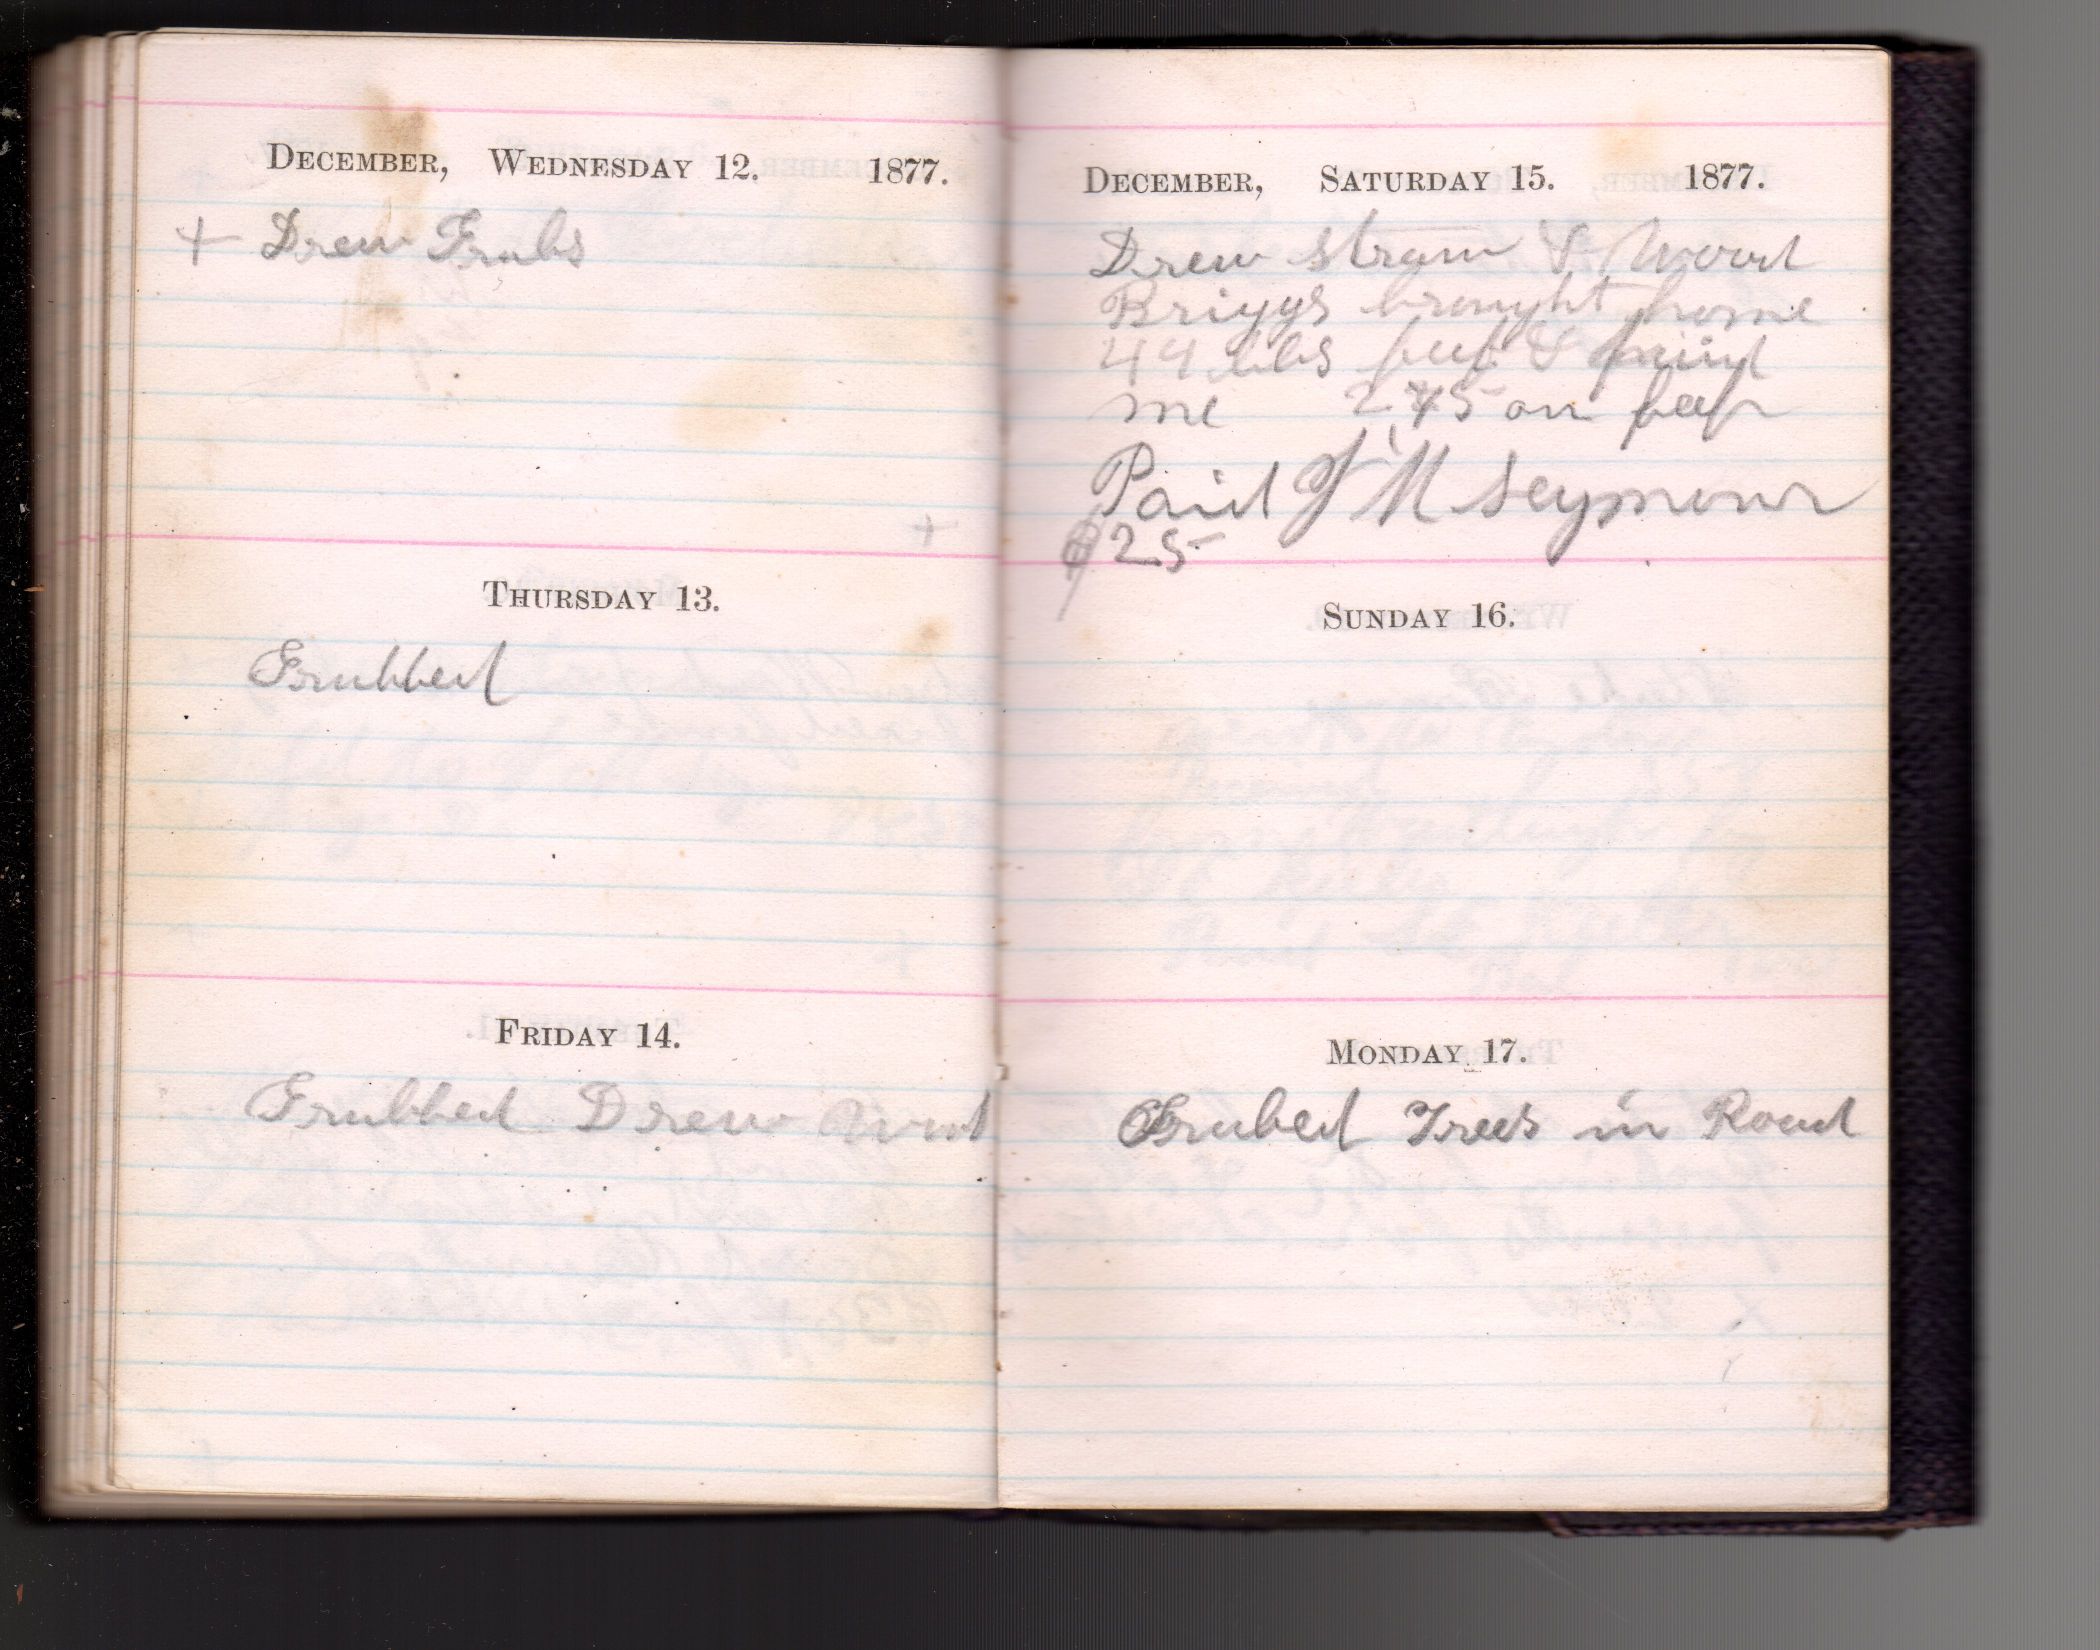 DECEMBER, WEDNESDAY 12. 1877.
+ Drew Grubs
+
THURSDAY 13.
Grubbed
FRIDAY 14.
Grubbed Drew
DECEMBER, SATURDAY 15. 1877.
Drew straw & Wood
Briggs brought home
44 lbs beef & paid
me 2.45 on beef
Paid J M Seymour
$25
SUNDAY 16.
MONDAY 17.
Grubed Trees in Road